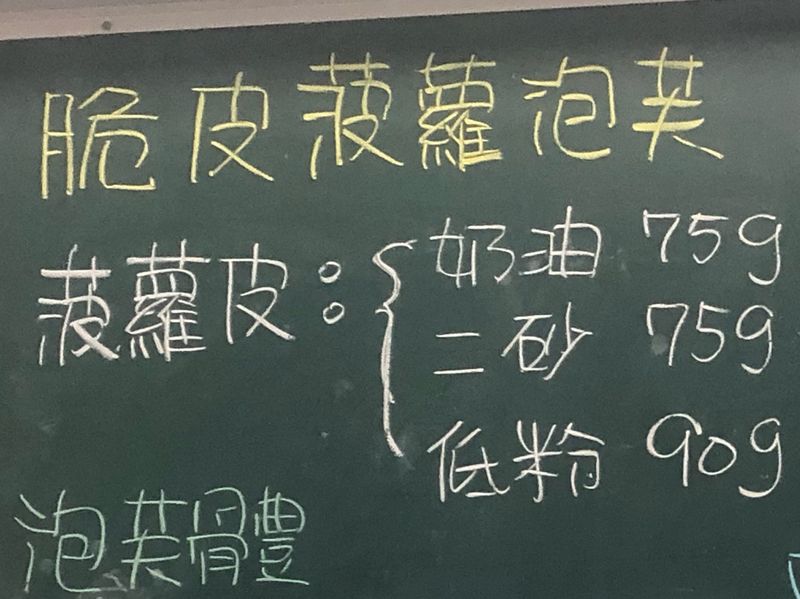 脆皮菠蘿泡芙
菠蘿皮：{奶油 75g
二砂 75g
低粉 90g
泡芙體